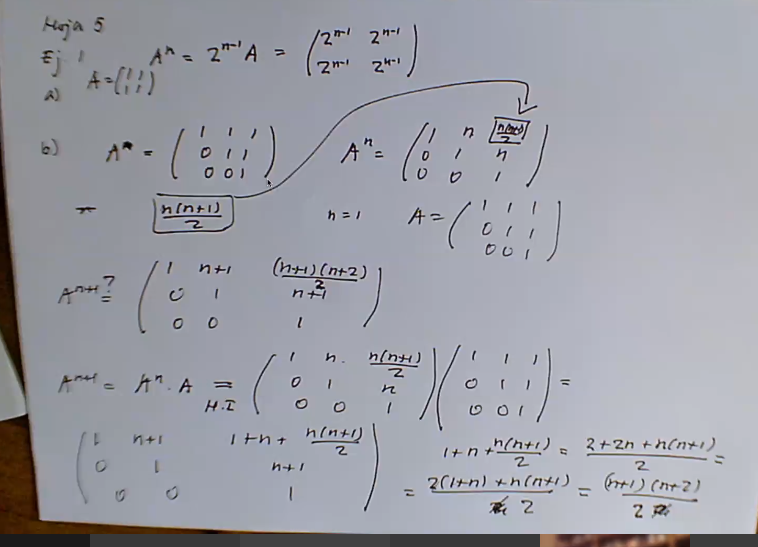 Hoja 5
Ej 1 Aⁿ = 2ⁿ⁻¹ A = ( 2ⁿ⁻¹ 2ⁿ⁻¹ ; 2ⁿ⁻¹ 2ⁿ⁻¹ )
a) A = ( 1 1 ; 1 1 )
b) A = ( 1 1 1 ; 0 1 1 ; 0 0 1 ) Aⁿ = ( 1 n n(n+1)/2 ; 0 1 n ; 0 0 1 )
n(n+1)/2 n = 1 A = ( 1 1 1 ; 0 1 1 ; 0 0 1 )
Aⁿ⁺¹ =? ( 1 n+1 (n+1)(n+2)/2 ; 0 1 n+1 ; 0 0 1 )
Aⁿ⁺¹ = Aⁿ · A = H.I ( 1 n n(n+1)/2 ; 0 1 n ; 0 0 1 ) ( 1 1 1 ; 0 1 1 ; 0 0 1 ) =
( 1 n+1 1+n+ n(n+1)/2 ; 0 1 n+1 ; 0 0 1 )
1+n+ n(n+1)/2 = (2+2n+n(n+1))/2 =
= (2(1+n)+n(n+1))/2 = (n+1)(n+2)/2